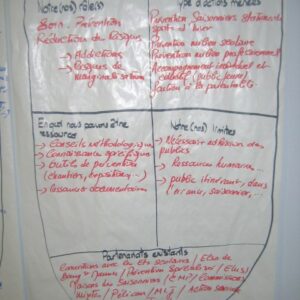 Notre (nos) rôle(s)
Soin, Prévention
Réduction du Risque
→ Addictions
→ Risques de
Type d'actions menées
Prévention Saisonniers stations de
sports d'hiver
Prévention milieu scolaire
Prévention milieu professionnel
Accompagnement individuel et
collectif (public jeune)
(action à la parentalité)
En quoi nous pouvons être
ressources
→ Conseils méthodologiques
→ Connaissance spécifique
→ Outils de prévention
(chantier, exposition...)
→ Ressource documentaire
Notre (nos) limites
→ Nécessite adhésion des
publics
→ Ressources humaines...
→ public itinérant, dans
l'errance, saisonnier...
Partenariats existants
scolaires
Prévention Spécialisée
Maisons du Saisonnier
Pélican / MLJ / Action sociale